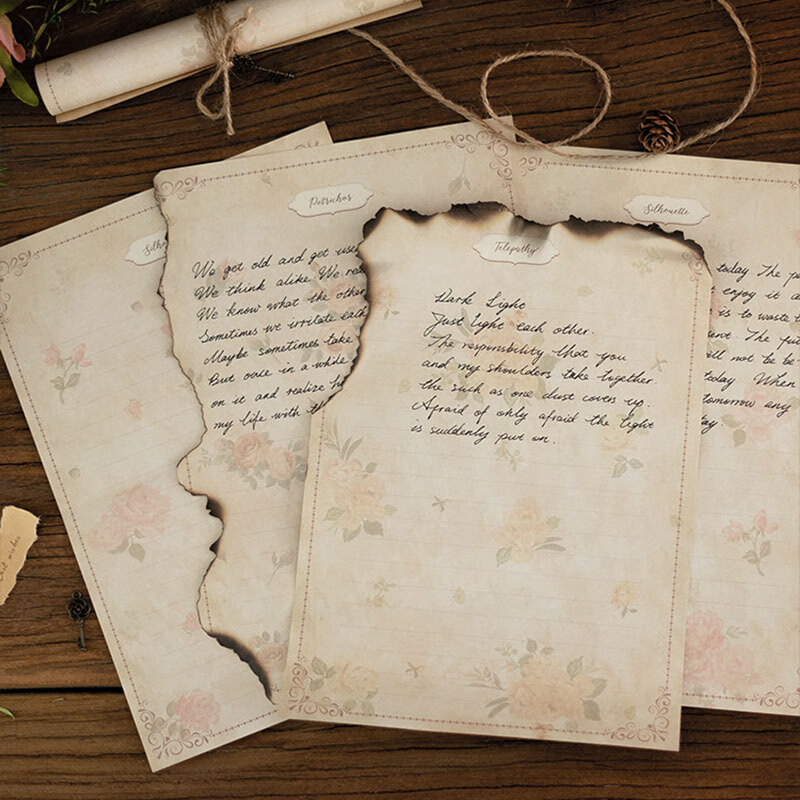 Silho
Petrichor
We get old and get use
We think alike. We re
We know what the other
Sometimes we irritate each
Maybe sometimes take
But once in a while
on it and realize h
my life with th
Telepathy
Dark Light
Just light each other.
The responsibility that you
and my shoulders take together.
the such as one dust covers up.
Afraid of only afraid the light
is suddenly put on.
Silhouette
today The pa
enjoy it a
is to waste t
ent. The pu
ill not be be
today When
tomorrow any
ay.
wishes